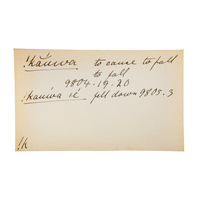 !kăuwa to cause to fall
to fall
9804.19.20
!kauwa ĭé fell down 9805.3
!k